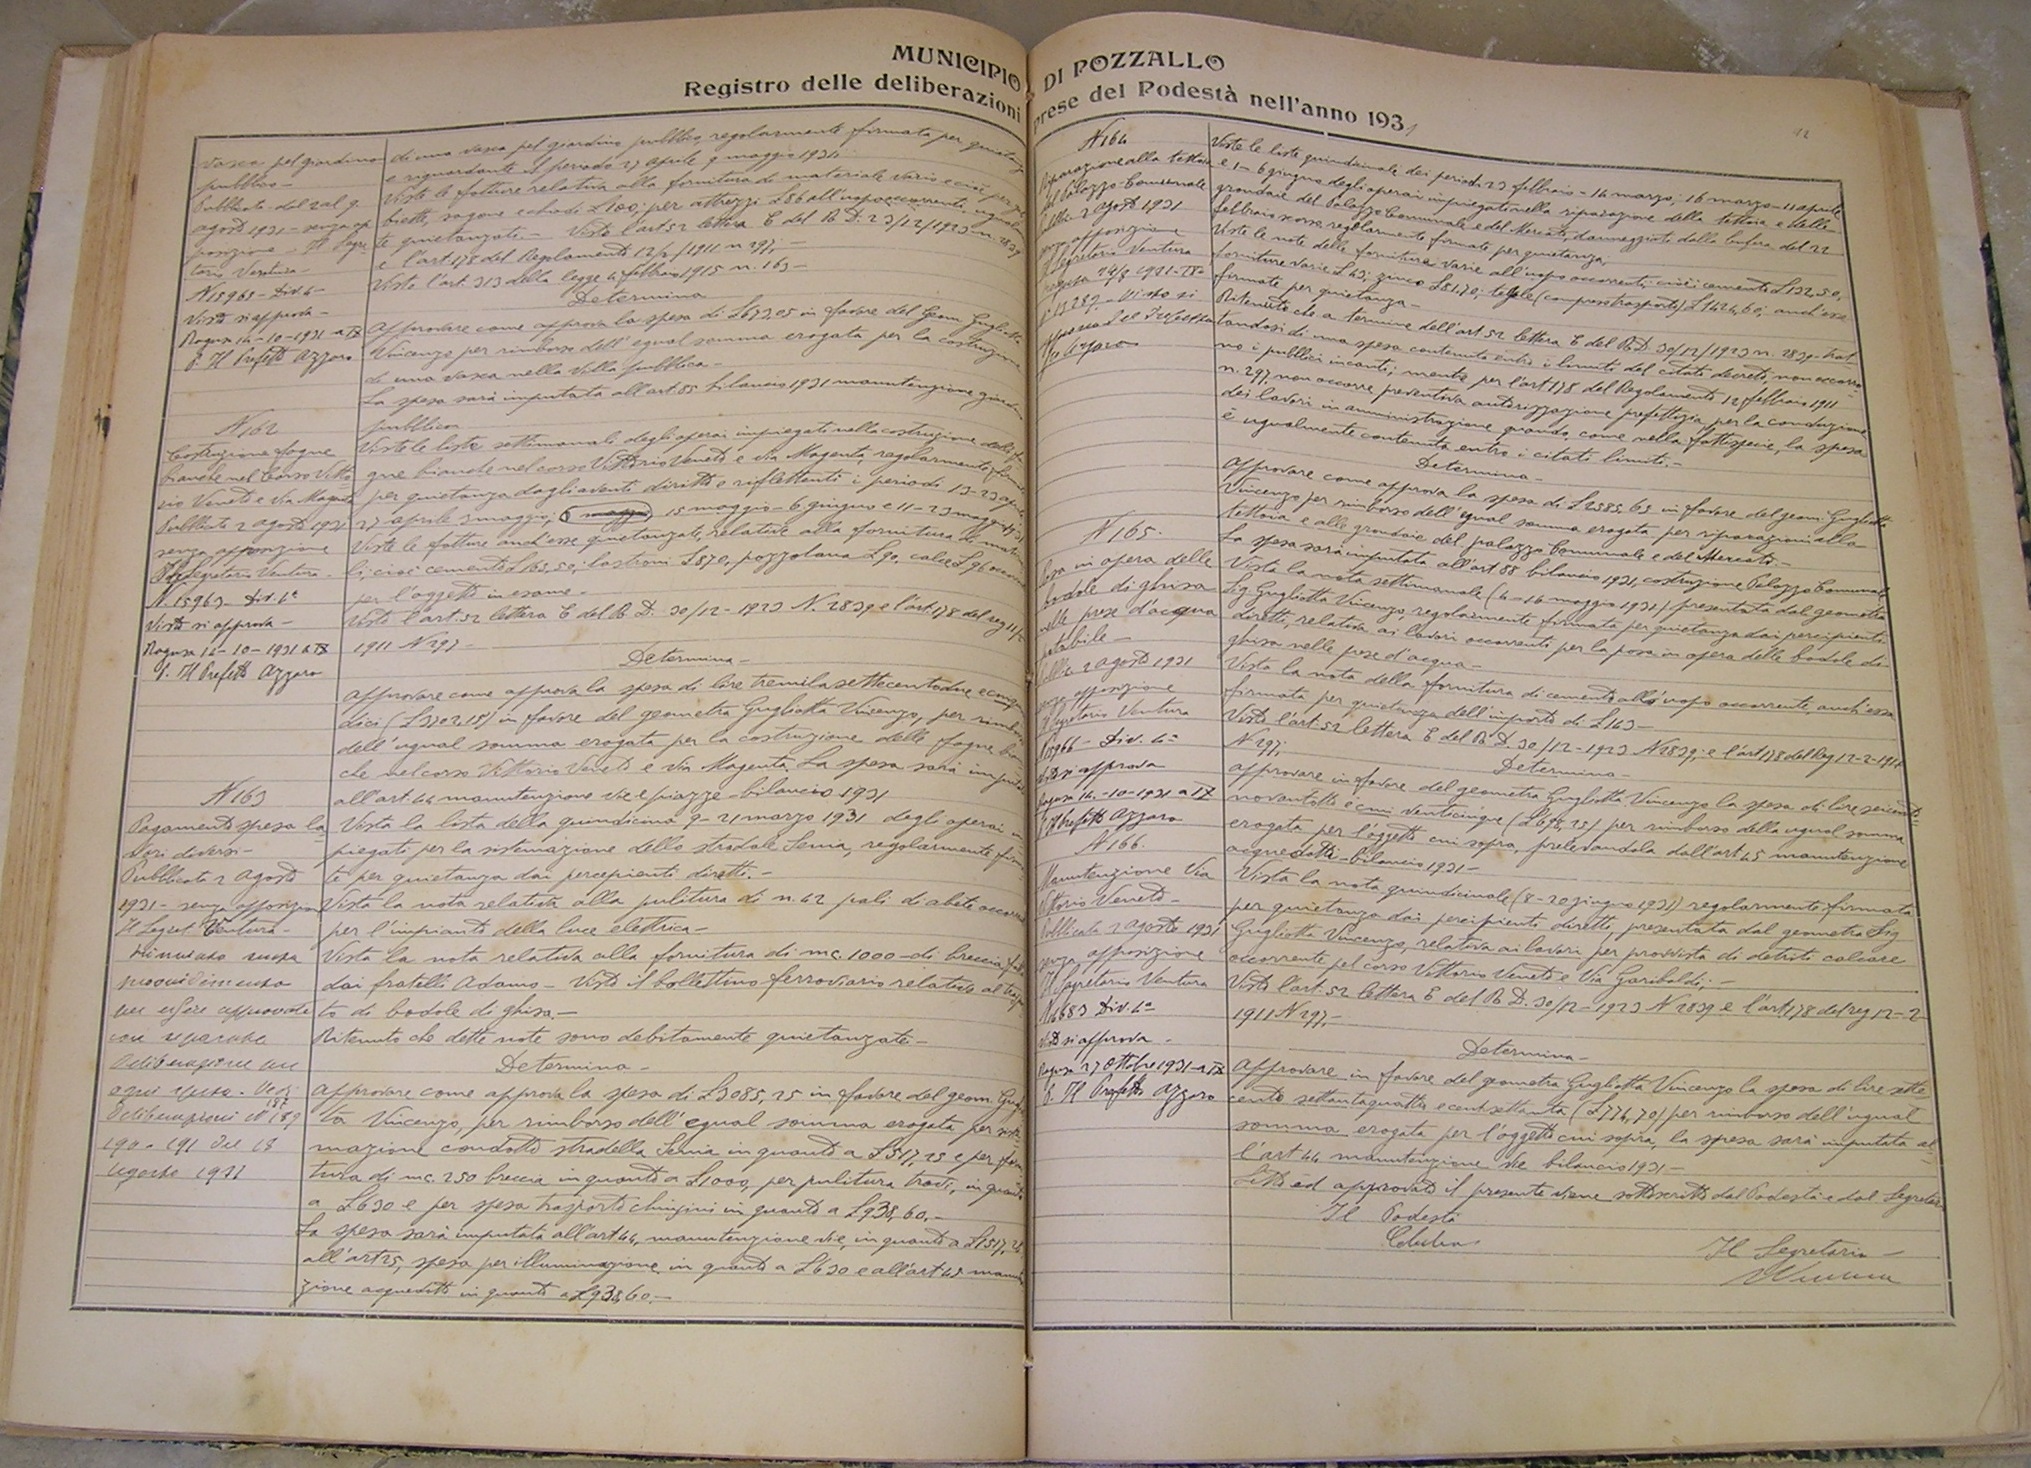 MUNICIPIO DI POZZALLO
Registro delle deliberazioni prese del Podestà nell'anno 1931
vasca pel giardino
pubblico -
Pubblicata dal 2 al 9
agosto 1931 - senza op
posizione - Il Segre
tario Ventura -
N 15965 - Div. 4a
Visto si approva -
Ragusa 14-10-1931 a IX
p. Il Prefetto Azzaro
di una vasca pel giardino pubblico, regolarmente firmata per quietanza
e riguardante il periodo 27 aprile 9 maggio 1931
Viste le fatture relative alla fornitura di materiale vario e cioè per
sagome e chiodi £ 100; per attrezzi £ 86 all'uopo occorrente, ugualmen
te quietanzate. - Visto l'art. 52 lettera E del R. D. 23/12/1923 n. 2839
e l'art. 178 del Regolamento 12/2/1911 n 297; -
Visto l'art. 313 della legge 4 febbraio 1915 n. 163 -
Determina
Approvare come approva la spesa di £ 673,05 in favore del Geom. Gugliotta
Vincenzo per rimborso dell'egual somma erogata per la costruzione
di una vasca nella villa pubblica -
La spesa sarà imputata all'art. 85 bilancio 1931 manutenzione giardino
pubblico
N 162
Costruzione fogne
bianche nel Corso Vitto
rio Veneto e Via Magenta
Pubblicata 2 agosto 1931
senza opposizione
Il Segretario Ventura -
N. 15963 - Div. 4a
Visto si approva -
Ragusa 14-10-1931 a IX
p. Il Prefetto Azzaro
Viste le liste settimanali degli operai impiegati nella costruzione delle fo
gne bianche nel corso Vittorio Veneto e via Magenta, regolarmente firmate
per quietanza dagli aventi diritto e riflettenti i periodi 13-23 aprile
27 aprile 9 maggio; 15 maggio - 6 giugno e 11-23 maggio 1931
Viste le fatture anch'esse quietanzate, relative alla fornitura di materia
li; cioè cemento £ 165,50; lastroni £ 870, pozzolana £ 90, calce £ 96 occorrenti
per l'oggetto in esame -
Visto l'art. 52 lettera E del R. D. 30/12-1923 N. 2839 e l'art. 178 del reg 12/2
1911 N 297 -
Determina -
Approvare come approva la spesa di lire tremilasettecentodue e cent. quin
dici (£ 3702,15) in favore del geometra Gugliotta Vincenzo, per rimborso
dell'ugual somma erogata per la costruzione delle fogne bian
che nel corso Vittorio Veneto e Via Magenta. La spesa sarà imputata
all'art. 44 manutenzione vie e piazze - bilancio 1931
N 163
Pagamento spesa la
vori diversi -
Pubblicata 2 agosto
1931 - senza opposizione
Il Segret. Ventura -
Rinviato senza
provvedimento
per essere approvate
con separate
deliberazioni per
ogni spesa. Vedi
deliberazioni N 187 189
190 - 191 del 18
agosto 1931
Vista la lista della quindicina 9-21 marzo 1931 degli operai im
piegati per la sistemazione dello stradale Senia, regolarmente firma
te per quietanza dai percepienti diretti. -
Vista la nota relativa alla pulitura di n. 42 pali di abete occorrenti
per l'impianto della luce elettrica -
Vista la nota relativa alla fornitura di mc. 1000 - di breccia
dai fratelli Adamo - Visto il bollettino ferroviario relativo al traspor
to di bodole di ghisa. -
Ritenuto che dette note sono debitamente quietanzate -
Determina -
Approvare come approva la spesa di £ 3085,25 in favore del geom. Gugliot
ta Vincenzo, per rimborso dell'egual somma erogata per siste
mazione condotto stradella Senia in quanto a £ 517,25 e per forni
tura di mc. 250 breccia in quanto a £ 1000, per pulitura travi, in quanto
a £ 630 e per spesa trasporto chiusini in quanto a £ 938,60. -
La spesa sarà imputata all'art 44, manutenzione vie, in quanto a £ 1517,25
all'art 25, spesa per illuminazione in quanto a £ 630 e all'art 45 manuten
zione acquedotto in quanto a £ 938,60. -
N 164
Riparazione alla tettoia
del Palazzo Comunale
Pubbl. 2 agosto 1931
senza opposizione
Il Segretario Ventura
Ragusa 24/8 1931 - IX
Visto si
approva Pel Prefetto
Azzaro
Viste le liste quindicinali dei periodi 23 febbraio - 14 marzo; 16 marzo - 11 aprile
e 1 - 6 giugno degli operai impiegati nella riparazione della tettoia e delle
grondaie del Palazzo Comunale e del Mercato, danneggiati dalla bufera del 22
febbraio scorso regolarmente firmate per quietanza;
Viste le note delle forniture varie all'uopo occorrenti; cioè: cemento £ 132,50,
forniture varie £ 63; zinco £ 81,70; tegole (compreso trasporto) £ 1424,60; anch'esse
firmate per quietanza -
Ritenuto che a termine dell'art. 52 lettera E del R. D. 30/12/1923 n. 2839 - trat
tandosi di una spesa contenuta entro i limiti del citato decreto, non occorro
no i pubblici incanti; mentre per l'art. 178 del Regolamento 12 febbraio 1911
n. 297, non occorre preventiva autorizzazione prefettizia per la conduzione
dei lavori in amministrazione quando, come nella fattispecie, la spesa
è ugualmente contenuta entro i citati limiti. -
Determina -
Approvare come approva la spesa di £ 2585,65 in favore del geom. Gugliotta
Vincenzo per rimborso dell'egual somma erogata per riparazioni alla
tettoia e alle grondaie del palazzo Comunale e del Mercato. -
La spesa sarà imputata all'art 88 bilancio 1931, costruzione Palazzo Comunale
N 165 -
Posa in opera delle
bodole di ghisa
nelle prese d'acqua
potabile -
Pubbl. 2 agosto 1931
senza opposizione
Il Segretario Ventura
N 15966 - Div. 4a
Visto si approva
Ragusa 14-10-1931 a IX
p. Il Prefetto Azzaro
Vista la nota settimanale (4-16 maggio 1931) presentata dal geometra
Sig Gugliotta Vincenzo, regolarmente firmata per quietanza dai percipienti
diretti, relativa ai lavori occorrenti per la posa in opera delle bodole di
ghisa nelle prese d'acqua -
Vista la nota della fornitura di cemento all'uopo occorrente, anch'essa
firmata per quietanza dell'importo di £ 163 -
Visto l'art. 52 lettera E del R. D. 30/12-1923 N 2839; e l'art 178 del Reg 12-2-1911
N 297;
Determina -
Approvare in favore del geometra Gugliotta Vincenzo la spesa di lire seicento
novantotto e cmi venticinque (£ 698,25) per rimborso della ugual somma
erogata per l'oggetto cui sopra, prelevandola dall'art 45 manutenzione
acquedotti - bilancio 1931 -
N 166.
Manutenzione Via
Vittorio Veneto -
Pubblicata 2 agosto 1931
senza opposizione
Il Segretario Ventura
N 16683 Div. 4a
Visto si approva -
Ragusa 27 Ottobre 1931 - a IX
p. Il Prefetto Azzaro
Vista la nota quindicinale (8-20 giugno 1931) regolarmente firmata
per quietanza dai percipienti diretti, presentata dal geometra Sig
Gugliotta Vincenzo, relativa ai lavori per provvista di detriti calcare
occorrente pel corso Vittorio Veneto e Via Garibaldi; -
Visto l'art. 52 lettera E del R. D. 30/12-1923 N 2839 e l'art 178 del reg 12-2-
1911 N 297, -
Determina -
Approvare in favore del geometra Gugliotta Vincenzo la spesa di lire sette
cento settantaquattro e cent. settanta (£ 774,70) per rimborso dell'ugual
somma erogata per l'oggetto cui sopra, la spesa sarà imputata al
l'art 44 manutenzione vie bilancio 1931 -
Letto ed approvato il presente viene sottoscritto dal Podestà e dal Segretario
Il Podestà
Il Segretario -